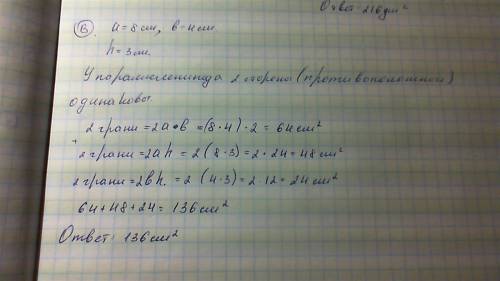 Ответ: 216 дм²
В) a = 8 см, в = 4 см.
h = 3 см.
У параллелепипеда 2 стороны (противоположной)
одинаковы.
2 грани = 2a•в = (8·4)·2 = 64 см²
+
2 грани = 2ah = 2(8·3) = 2·24 = 48 см²
2 грани = 2вh. = 2(4·3) = 2·12 = 24 см²
64+48+24 = 136 см²
Ответ: 136 см²